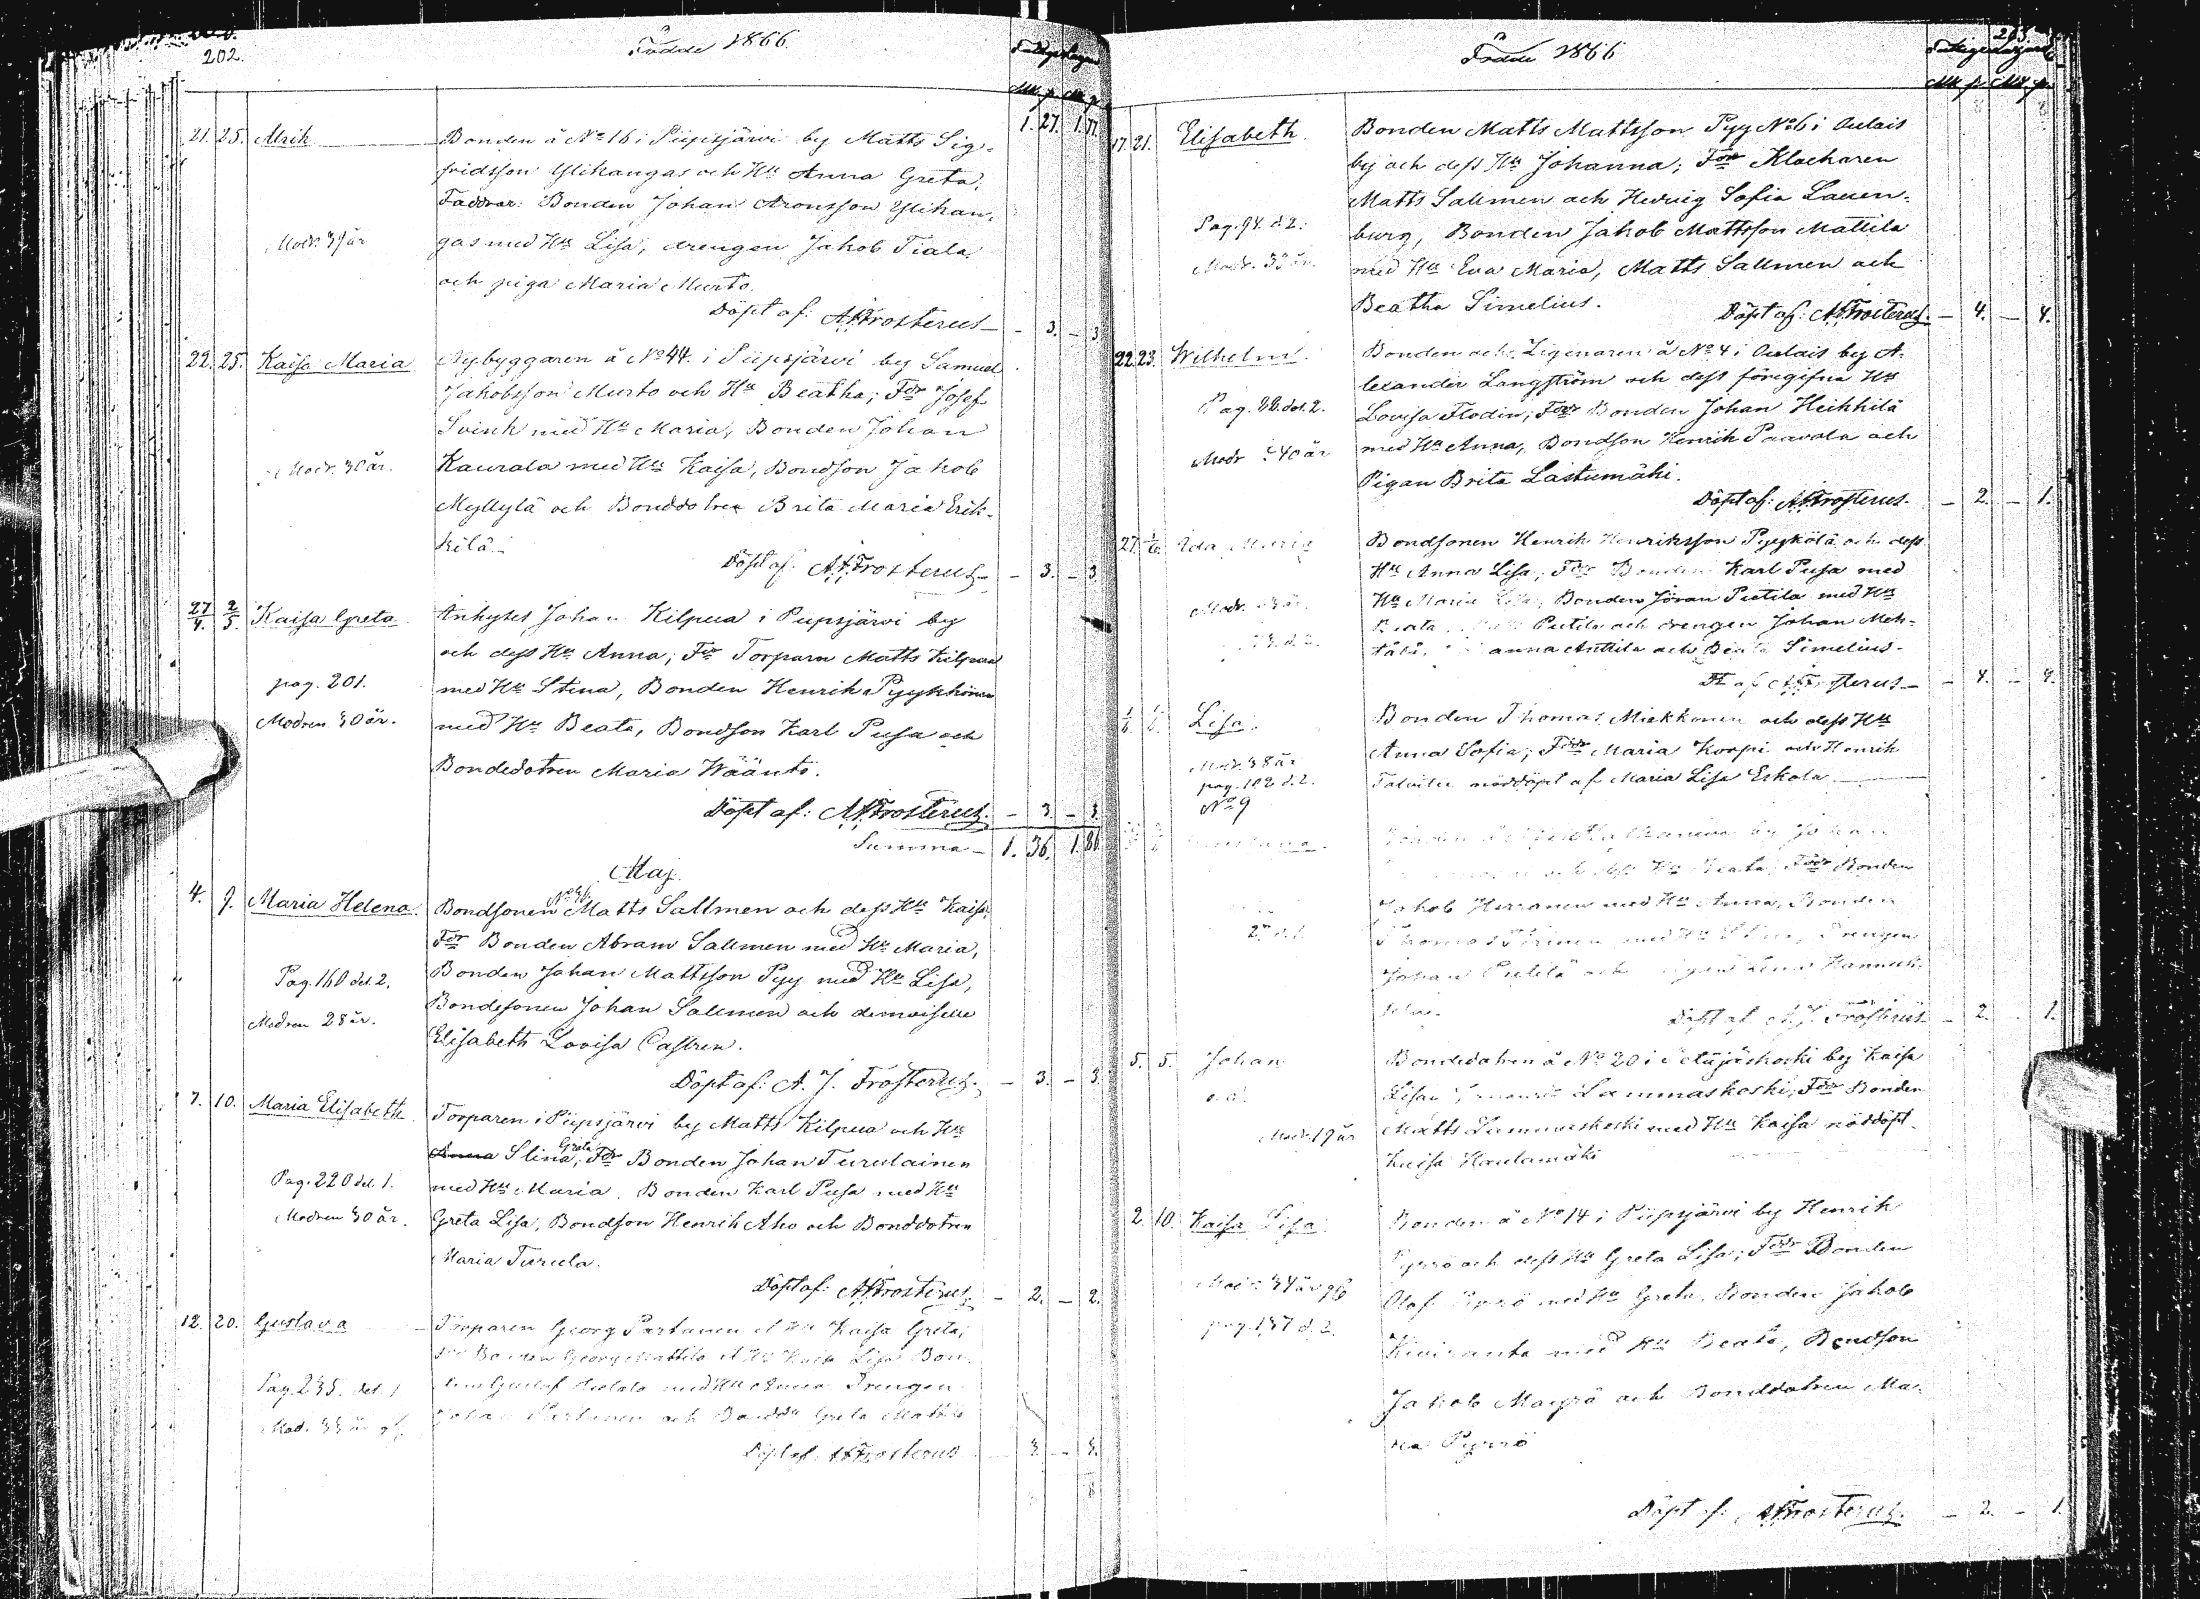 202.
Födde 1866.
Mk p. Mk p.
1. 27. 1. 77.
21. 25. Alrik Bonden å No 16 i Piipsjärvi by Matts Sig-
fridsson Ylikangas och Hu Anna Greta;
Faddrar: Bonden Johan Aronsson Ylikan-
Modr. 39 år gas med Hu Lisa, drengen Jakob Tiala
och piga Maria Murto.
Döpt af: A.J. Frosterus — 3. — 3.
22. 25. Kaisa Maria Nybyggaren å No 44. i Piipsjärvi by Samuel
Jakobsson Murto och Hu Beatha; Fdr Josef
Svink med Hu Maria, Bonden Johan
Modr. 30 år. Kaurala med Hu Kaisa, Bondson Jakob
Myllylä och Bonddotren Brita Maria Erik-
kilä.
Döpt af: A.J. Frosterus — 3. — 3.
27/4. 2/5. Kaisa Greta Inhyses Johan Kilpua i Piipsjärvi by
och dess Hu Anna; Fdr Torparn Matts Kilpua
pag. 201. med Hu Stina, Bonden Henrik Pyykkönen
Modren 30 år. med Hu Beata, Bondson Karl Pusa och
Bondedotren Maria Wääntö.
Döpt af: A.J. Frosterus. — 3. — 3.
Summa — 1. 36. 1. 86.
Maj.
No 36
4. 9. Maria Helena. Bondsonen Matts Sallmen och dess Hu Kaisa
Fdr Bonden Abram Sallmen med Hu Maria,
Pag. 160 del. 2. Bonden Johan Mattsson Pyy med Hu Lisa,
Modren 28 år. Bondesonen Johan Sallmen och demoiselle
Elisabeth Lovisa Castren.
Döpt af: A. J. Frosterus. — 3. — 3.
7. 10. Maria Elisabeth Torparen i Piipsjärvi by Matts Kilpua och Hu
Anna Stina Greta; Fdr Bonden Johan Turulainen
Pag. 220 del. 1. med Hu Maria, Bonden Karl Pusa med Hu
Modren 30 år. Greta Lisa, Bondson Henrik Aho och Bonddotren
Maria Turula.
Döpt af: A.J. Frosterus. — 2. — 2.
12. 20. Gustava Torparen Georg Partanen & Hu Kaisa Greta;
Fdr Bonden Georg Mattila & Hu Kaisa Lisa Bon-
Pag. 235. del. 1 den Gustaf med Hu Anna Drengen
Mod. 33 år Johan Partanen och Bondd. Greta Mattila
Döpt af: A.J. Frosterus 3. — 3.
203.
Födde 1866
Mk p. Mk p.
17. 21. Elisabeth. Bonden Matts Mattsson Pyy No 6 i Oulais
by och dess Hu Johanna; Fdr Klockaren
Matts Sallmen och Hedvig Sofia Lauen-
Pag. 94. d. 2. burg, Bonden Jakob Mattsson Mattila
Modr. 33 år. med Hu Eva Maria, Matts Sallmen och
Beatha Simelius. Döpt af: A.J. Frosterus. — 4. — 4.
22. 23. Wilhelm. Bonden och Ligenaren å No 4 i Oulais by A-
lexander Langström och dess föregifna Hu
Pag. 88. del. 2. Lovisa Flodin; Fdr Bonden Johan Heikkilä
Modr 40 år med Hu Anna, Bondson Henrik Paavola och
Pigan Brita Lastumäki.
Döpt af: A.J. Frosterus. — 2. — 1.
27. 1/6. Ida Maria Bondsonen Henrik Henriksson Pyykölä och dess
Hu Anna Lisa; Fdr Bonden Karl Pusa med
Modr. år. Hu Maria Lisa, Bonden Jöran Putila med Hu
Putila och drengen Johan Meh-
tälä, Anna Anttila och Beata Simelius.
Dt af A.J. Frosterus — 4. — 4.
Lisa. Bonden Thomas Miekkonen och dess Hu
Modr. 38 år Anna Sofia; Fddr Maria Korpi och Henrik
pag. 102 d. 2. Talvitie nöddöpt af Maria Lisa Eskola
No 9
by Johan
och dess Hu Beata; Fdr Bonden
Jakob Herranen med Hu Anna, Bonden
Thomas med Hu Drengen
Johan Putilä och
Döpt af A. J. Frosterus — 2. 1.
5. 5. Johan Bondedotren å No 20 i by Kaisa
Lisa Lammaskoski; Fdr Bonden
Modr. 19 år Matts Lammaskoski med Hu Kaisa nöddöpt
Kaisa Haulamäki
2. 10. Kaisa Lisa. Bonden å No 14 i Piipsjärvi by Henrik
Pyrrö och dess Hu Greta Lisa; Fddr Bonden
Modr. 34 år Olof Pyrrö med Hu Greta. Bonden Jakob
pag. 137 d. 2. Kiviranta med Hu Beata, Bondson
Jakob Mayrä och Bonddotren Ma-
ria Pyrrö
Döpt af: A.J. Frosterus. — 2. — 1.